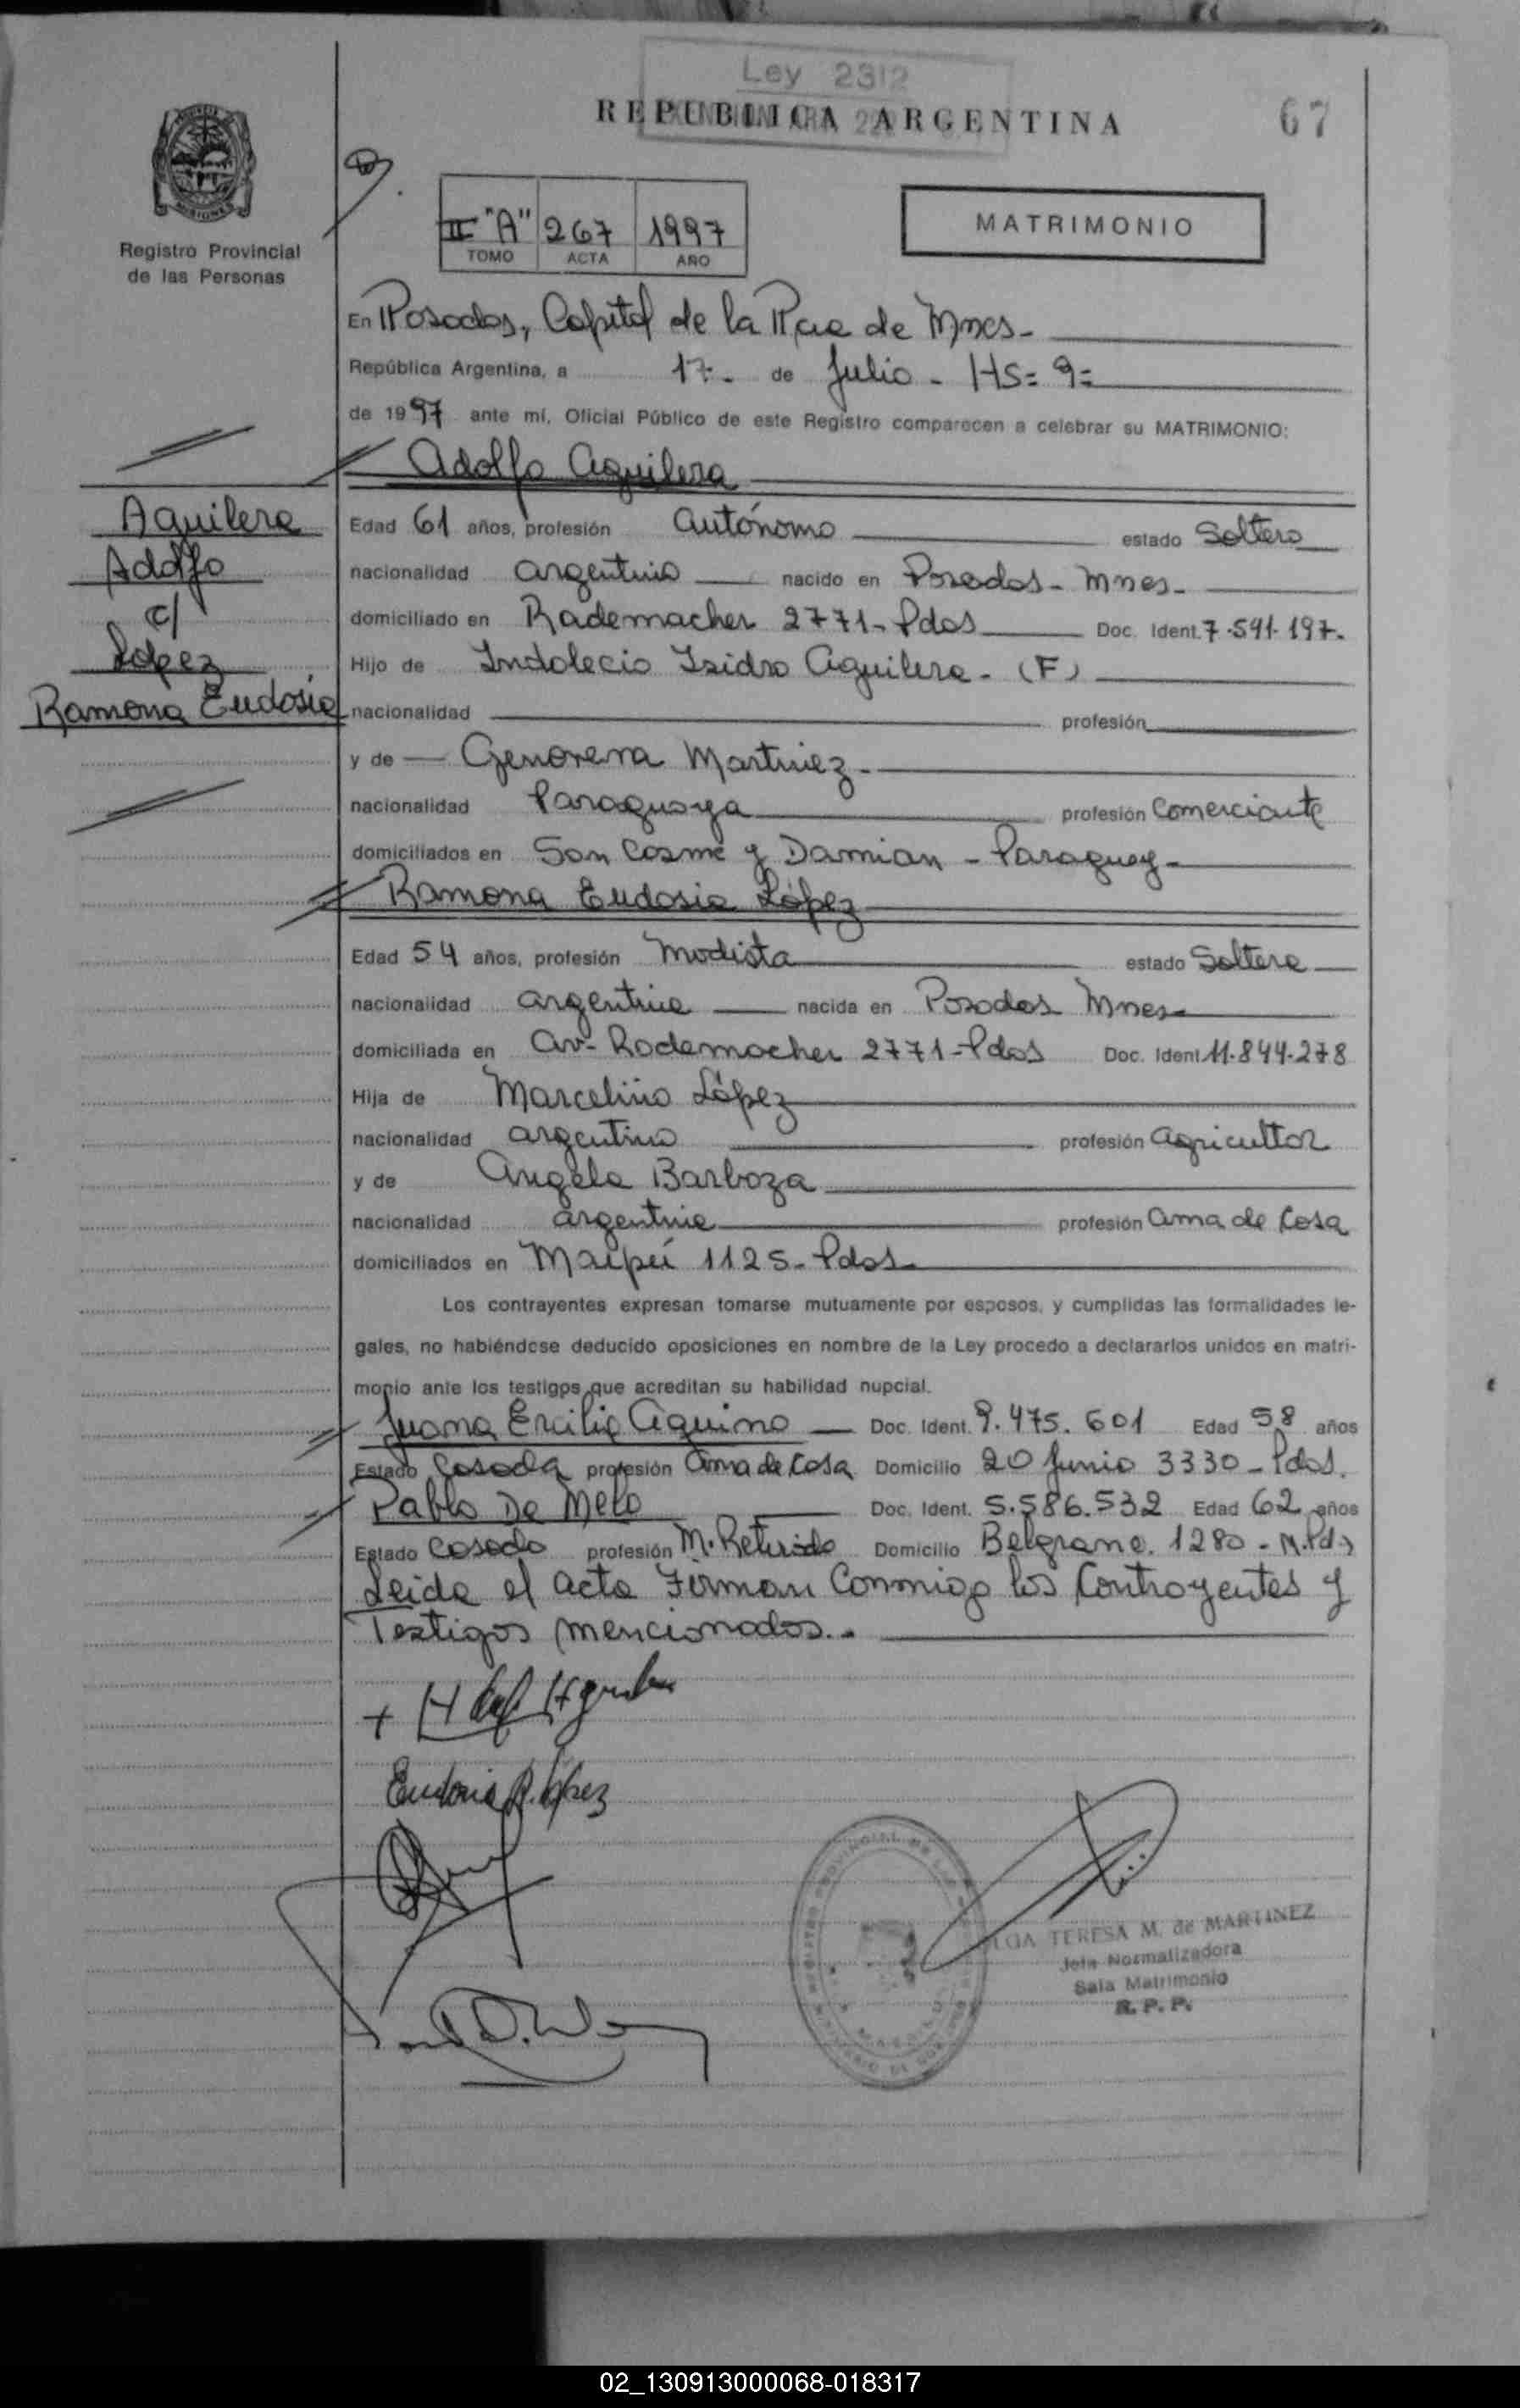 Ley 2312
REPUBLICA ARGENTINA
67
Registro Provincial
de las Personas
II "A" 267 1997
TOMO ACTA AÑO
MATRIMONIO
En Posadas, Capital de la Pcia de Mnes-
República Argentina, a 17- de Julio - HS= 9=
de 1997 ante mí, Oficial Público de este Registro comparecen a celebrar su MATRIMONIO:
Adolfo Aguilera
Aguilera
Adolfo
c/
López
Ramona Eudosia
Edad 61 años, profesión Autónomo estado Soltero
nacionalidad argentino nacido en Posadas - Mnes-
domiciliado en Rademacher 2771- Pdas Doc. Ident. 7.591.197.
Hijo de Indolecio Isidro Aguilera - (F)
nacionalidad profesión
y de Genovena Martinez-
nacionalidad Paraguaya profesión Comerciante
domiciliados en San Cosme y Damian - Paraguay-
Ramona Eudosia López
Edad 54 años, profesión Modista estado Soltera
nacionalidad argentina nacida en Posadas Mnes
domiciliada en Av- Rademacher 2771-Pdas Doc. Ident 11.844.278
Hija de Marcelino López
nacionalidad argentino profesión Agricultor
y de Angela Barboza
nacionalidad argentina profesión Ama de Casa
domiciliados en Maipú 1125- Pdas-
Los contrayentes expresan tomarse mutuamente por esposos, y cumplidas las formalidades le-
gales, no habiéndose deducido oposiciones en nombre de la Ley procedo a declararlos unidos en matri-
monio ante los testigos que acreditan su habilidad nupcial.
Juana Ercilia Aquino Doc. Ident. 9.475.601 Edad 58 años
Estado Casada profesión Ama de Casa Domicilio 20 Junio 3330 - Pdas.
Pablo De Melo Doc. Ident. 5.586.532 Edad 62 años
Estado Casado profesión M. Retirado Domicilio Belgrano. 1280 - N.Pdas
Leida el acta Firman Conmigo los Contrayentes y
Testigos mencionados..-
Eudosia R. López
TERESA M. de MARTINEZ
Jefa Normalizadora
Sala Matrimonio
R. P. P.
02_130913000068-018317